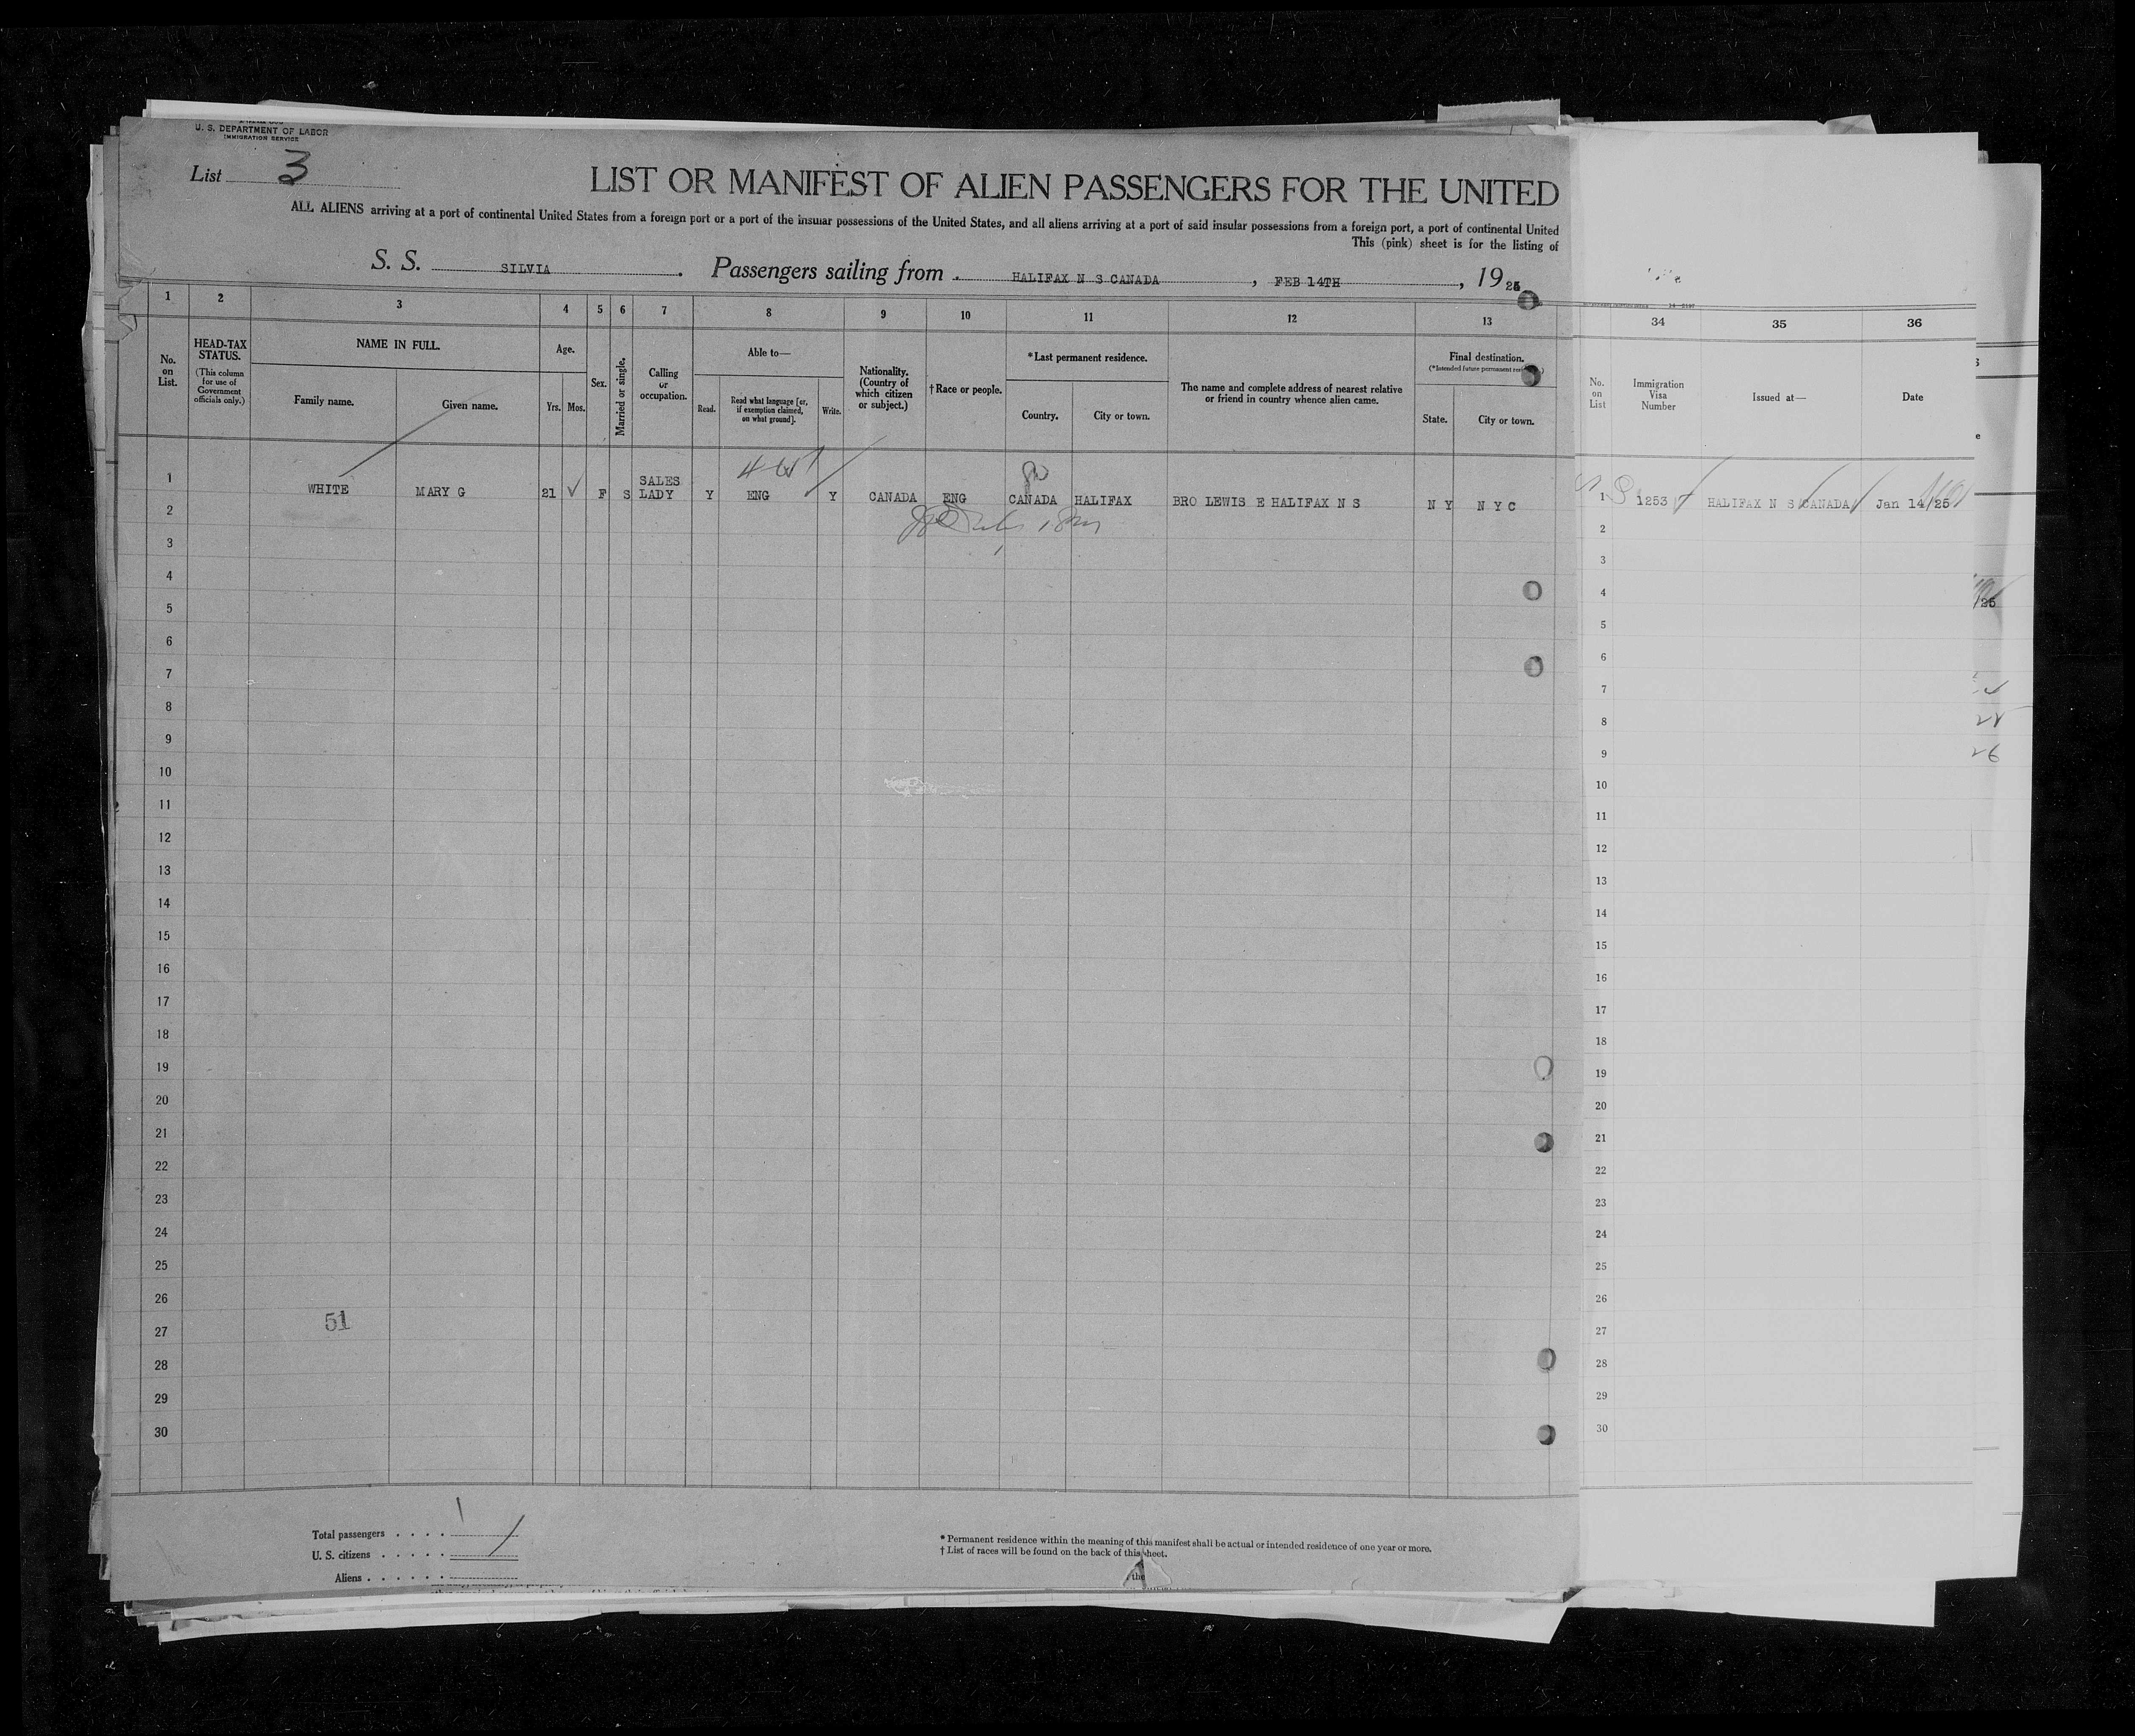 U. S. DEPARTMENT OF LABOR
IMMIGRATION SERVICE
List 3
LIST OR MANIFEST OF ALIEN PASSENGERS FOR THE UNITED
ALL ALIENS arriving at a port of continental United States from a foreign port or a port of the insular possessions of the United States, and all aliens arriving at a port of said insular possessions from a foreign port, a port of continental United
This (pink) sheet is for the listing of
S. S. SILVIA. Passengers sailing from HALIFAX N S CANADA, FEB 14TH, 1925
1 2 3 4 5 6 7 8 9 10 11 12 13 34 35 36
No. on List.
HEAD-TAX STATUS.
(This column for use of Government officials only.)
NAME IN FULL.
Family name.
Given name.
Age.
Yrs. Mos.
Sex.
Married or single.
Calling or occupation.
Able to—
Read.
Read what language [or, if exemption claimed, on what ground].
Write.
Nationality. (Country of which citizen or subject.)
†Race or people.
*Last permanent residence.
Country.
City or town.
The name and complete address of nearest relative or friend in country whence alien came.
Final destination.
(*Intended future permanent
State.
City or town.
No. on List
Immigration Visa Number
Issued at—
Date
1 WHITE MARY G 21 F S SALES LADY Y ENG Y CANADA ENG CANADA HALIFAX BRO LEWIS E HALIFAX N S N Y N Y C 1 1253 HALIFAX N S CANADA Jan 14/25
2 2
3 3
4 4
/25
5 5
6 6
7 7
8 8
9 9
26
10 10
11 11
12 12
13 13
14 14
15 15
16 16
17 17
18 18
19 19
20 20
21 21
22 22
23 23
24 24
25 25
26 26
51
27 27
28 28
29 29
30 30
Total passengers . . . . 1
U. S. citizens . . . . .
Aliens . . . . . .
* Permanent residence within the meaning of this manifest shall be actual or intended residence of one year or more.
† List of races will be found on the back of this sheet.
the